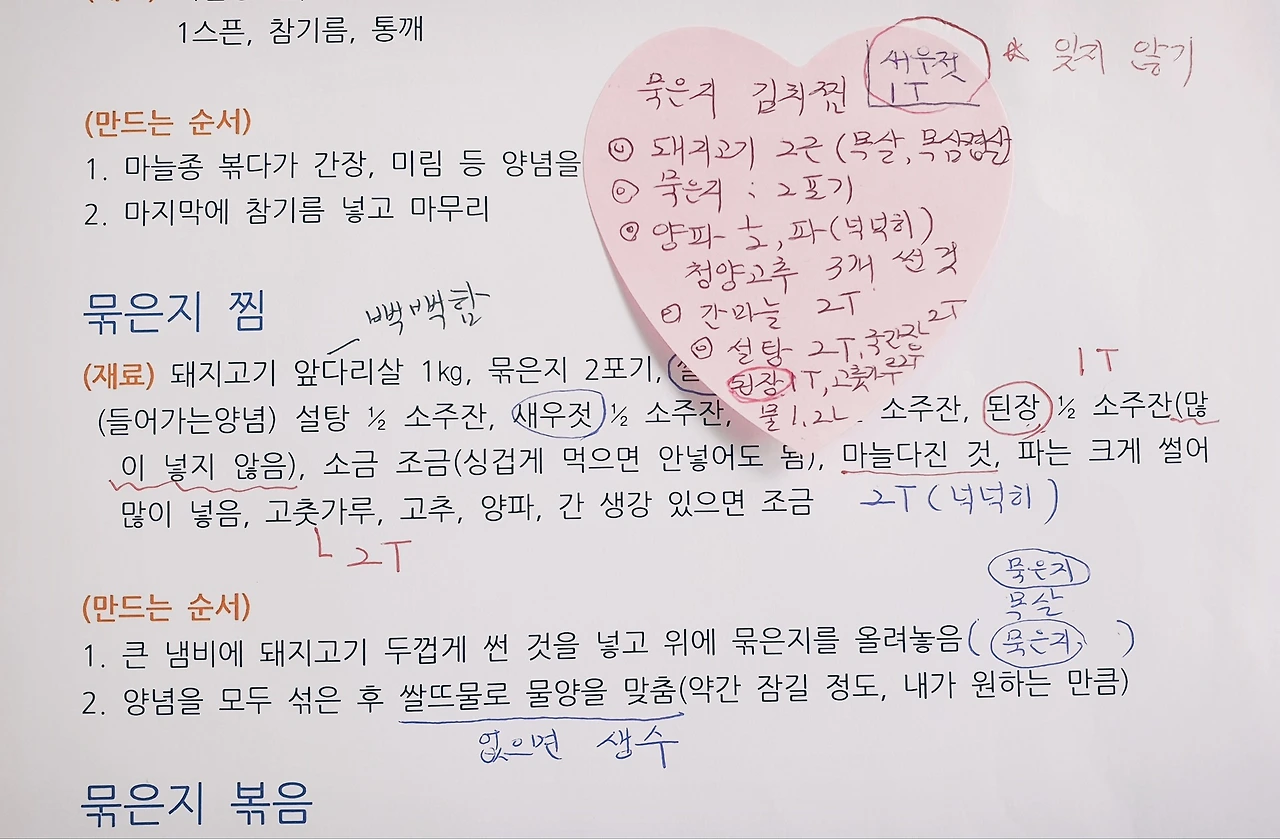 1스푼, 참기름, 통깨
(만드는 순서)
1. 마늘종 볶다가 간장, 미림 등 양념을
2. 마지막에 참기름 넣고 마무리
묵은지 김치찜
새우젓
1T
* 잊지 않기
돼지고기 2근 (목살,
묵은지 : 2포기
양파 ½, 파(넉넉히)
청양고추 3개 썬 것
간마늘 2T
설탕 2T, 국간장 2T
된장 1T, 고춧가루 2T
물 1.2L
묶은지 찜
빽빽함
(재료) 돼지고기 앞다리살 1kg, 묶은지 2포기,
1T
(들어가는양념) 설탕 ½ 소주잔, 새우젓 ½ 소주잔, 소주잔, 된장 ½ 소주잔(많
이 넣지 않음), 소금 조금(싱겁게 먹으면 안넣어도 됨), 마늘다진 것, 파는 크게 썰어
많이 넣음, 고춧가루, 고추, 양파, 간 생강 있으면 조금
2T (넉넉히)
2T
(만드는 순서)
묵은지
목살
1. 큰 냄비에 돼지고기 두껍게 썬 것을 넣고 위에 묶은지를 올려놓음( 묵은지 )
2. 양념을 모두 섞은 후 쌀뜨물로 물양을 맞춤(약간 잠길 정도, 내가 원하는 만큼)
없으면 생수
묶은지 볶음